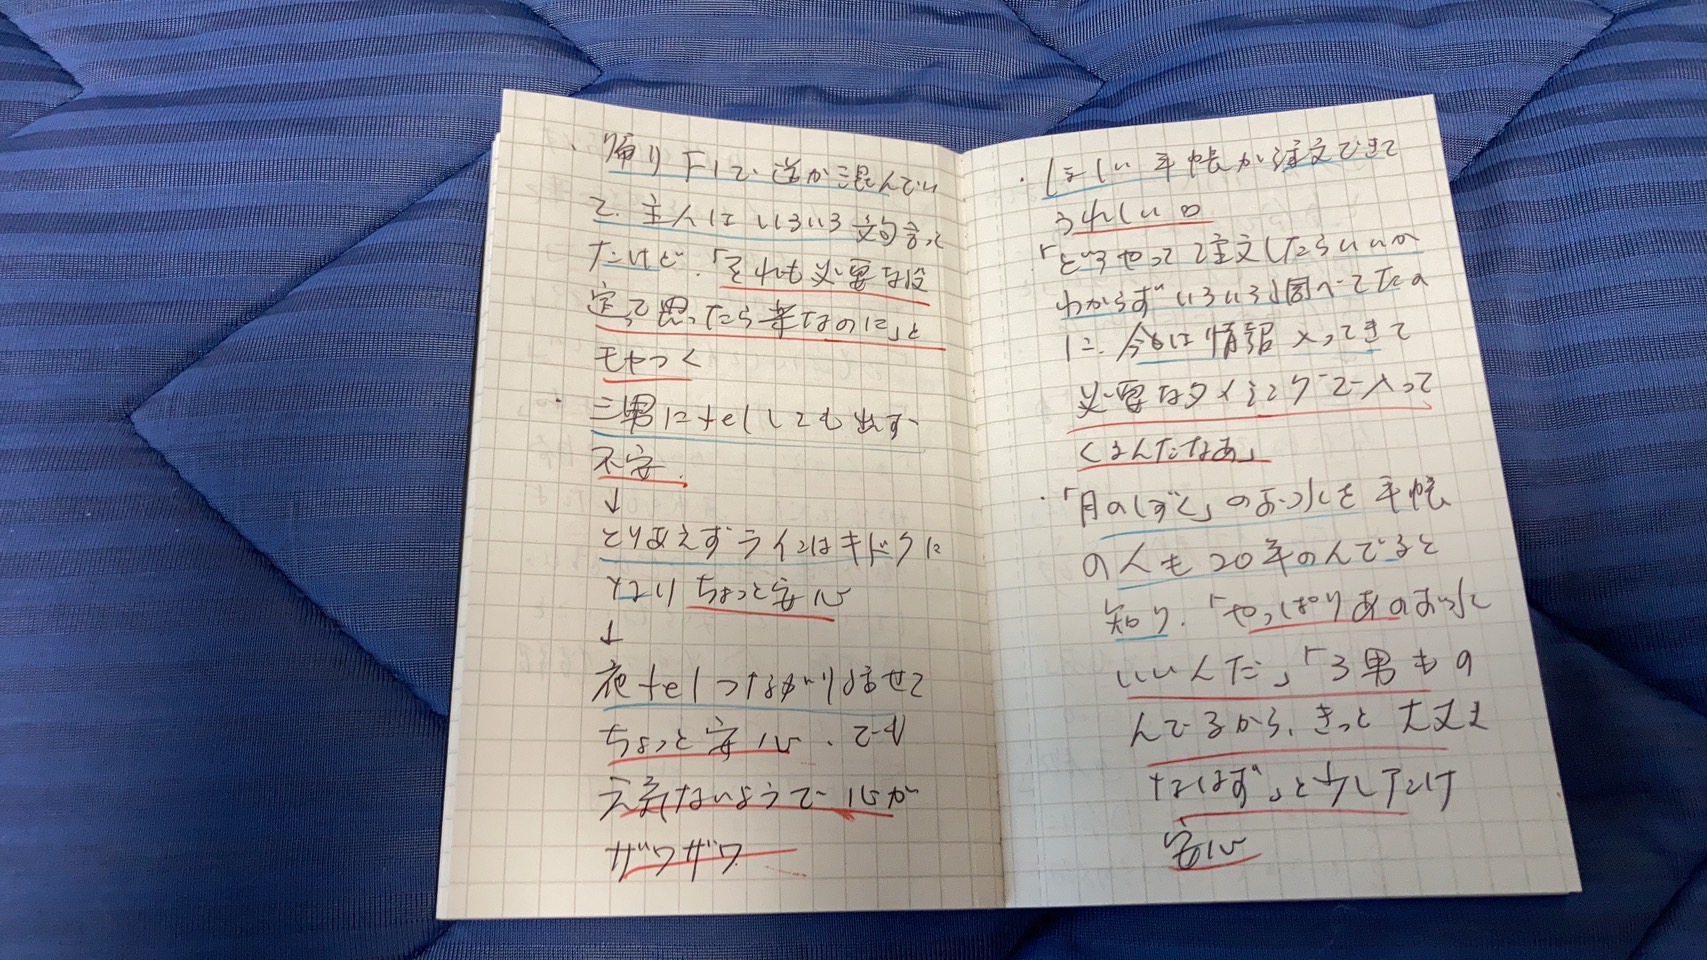 ・帰り下りで道が混んでい
て、主人はいろいろ文句言って
たけど、「それも必要な設
定って思ったら楽なのに」と
モヤつく
・三男にtelしても出ず
不安.
↓
とりあえずラインはキドクに
なりちょっと安心
↓
夜telつながりませて
ちょっと安心、でも
元気ないようで心が
ザワザワ
・ほしい手帳が注文できて
うれしい。
「どうやって注文したらいいか
わからずいろいろ調べてたの
に、今日は情報入ってきて
必要なタイミングで入って
くるんだなあ」
・「月のしずく」のお水を手帳
の人も20年のんでると
知り、「やっぱりあのお水
いいんだ」「3男もの
んでるから、きっと大丈夫
なはず」と少しだけ
安心